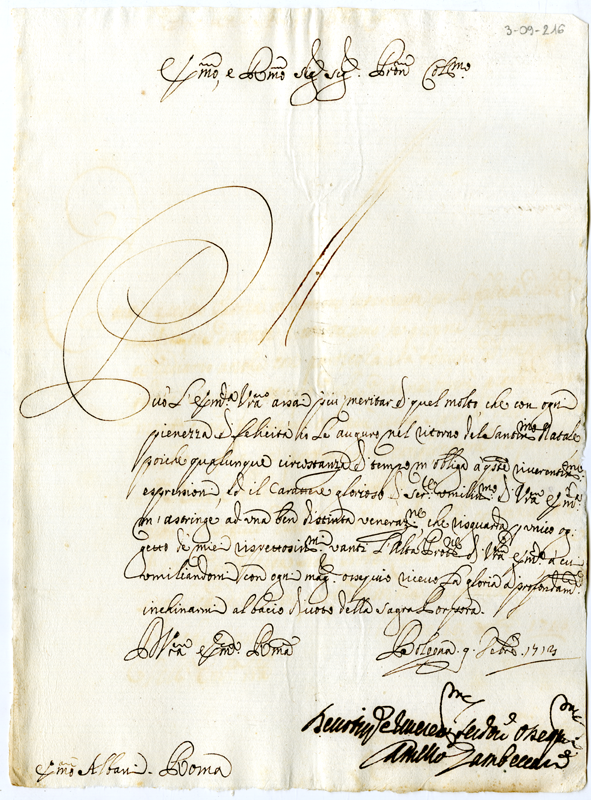 3-09-216
Emo, e Rmo Sig. Sig. Pron Colmo
Può L'Emza Vra assai più meritar di quel molto che con ogni
pienezza di felicità io Le auguro nel ritorno del Santmo Natale
poiche qualunque circostanza di tempo m'obbliga a queste riverentme
espressioni, ed il Carattere glorioso di Serre umilmo di Vra Emza
m'astringe ad una ben distinta venerane che risguarda p unico og
getto de miei rispettosmi vanti L'Alta Prone di Vra Emza a cui
umiliandomi con ogni magr ossequio ricevo La gloria a profondamte
inchinarmi al bacio divoto della Sagra Porpora.
Di Vra Emza Rma Bologna 9
Servre osseqmo
Camillo Zambeccari
Emo Albani. Roma